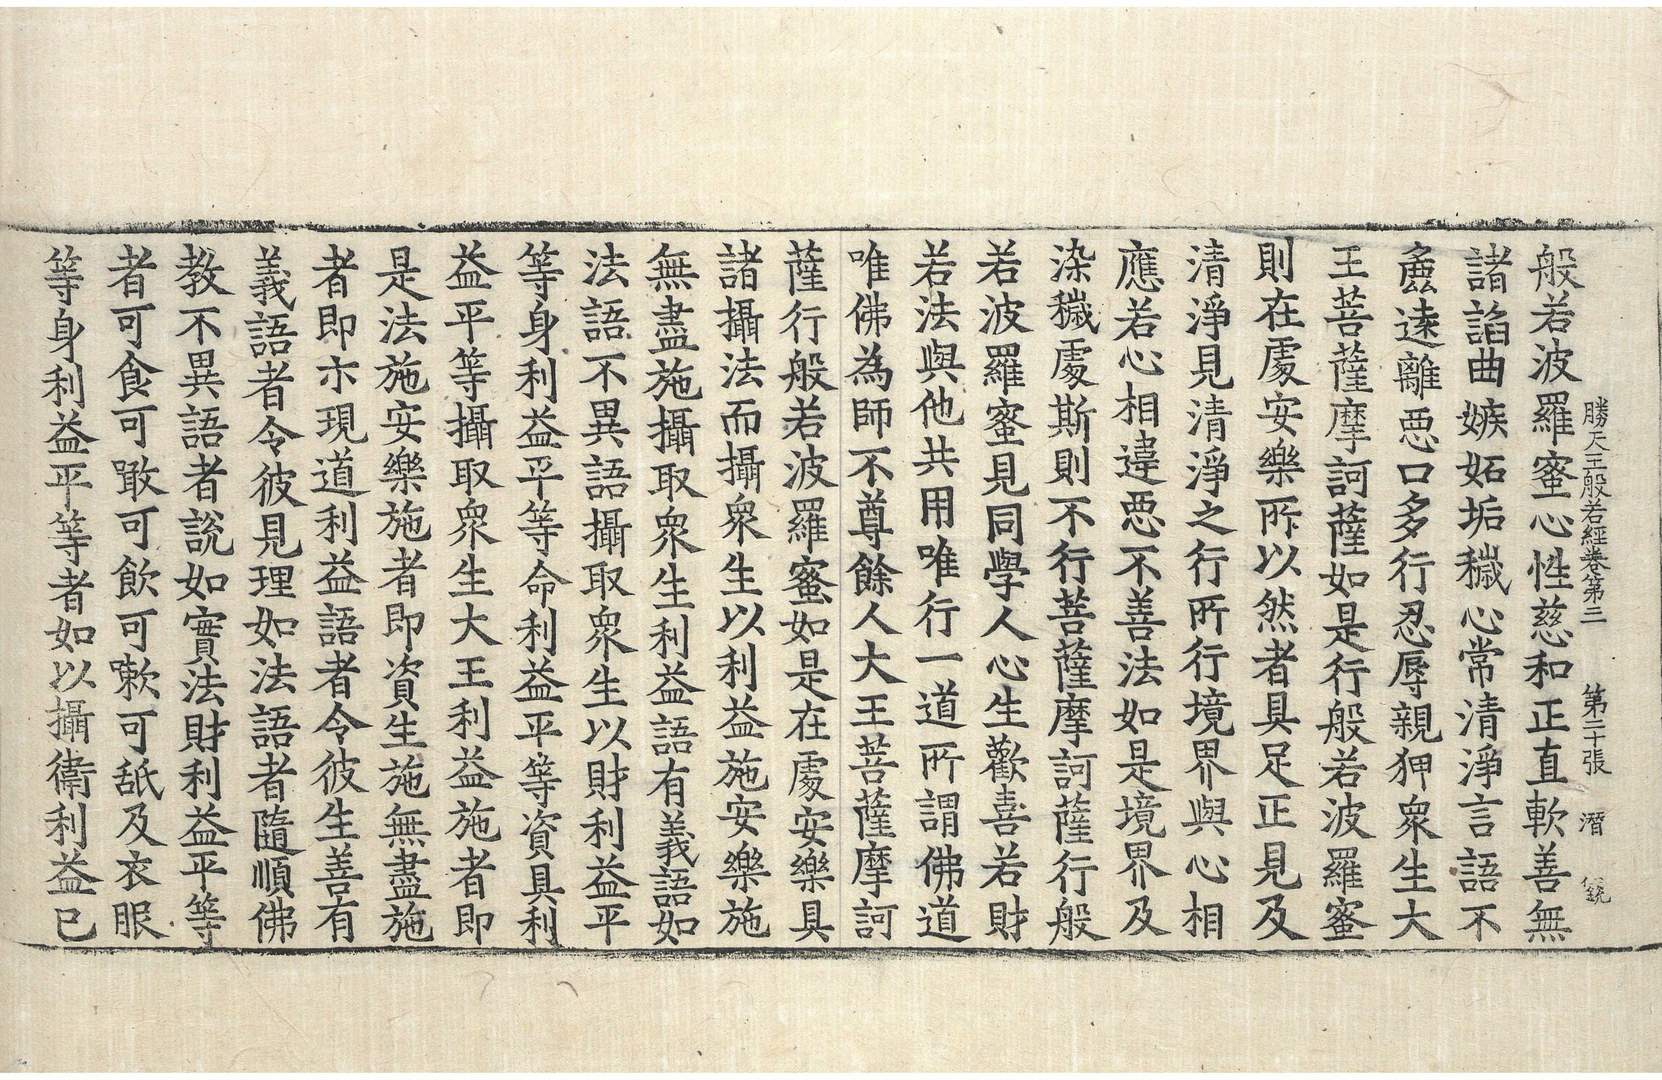 勝天王般若經卷第三　第二十張　潛　㲀
般若波羅蜜心性慈和正直軟善無
諸諂曲嫉妬垢穢心常清淨言語不
麁遠離惡口多行忍辱親狎衆生大
王菩薩摩訶薩如是行般若波羅蜜
則在處安樂所以然者具足正見及
清淨見清淨之行所行境界與心相
應若心相違惡不善法如是境界及
染穢處斯則不行菩薩摩訶薩行般
若波羅蜜見同學人心生歡喜若財
若法與他共用唯行一道所謂佛道
唯佛為師不尊餘人大王菩薩摩訶
薩行般若波羅蜜如是在處安樂具
諸攝法而攝衆生以利益施安樂施
無盡施攝取衆生利益語有義語如
法語不異語攝取衆生以財利益平
等身利益平等命利益平等資具利
益平等攝取衆生大王利益施者即
是法施安樂施者即資生施無盡施
者即示現道利益語者令彼生善有
義語者令彼見理如法語者隨順佛
教不異語者說如實法財利益平等
者可食可噉可飲可嗽可舐及衣服
等身利益平等者如以攝衛利益已